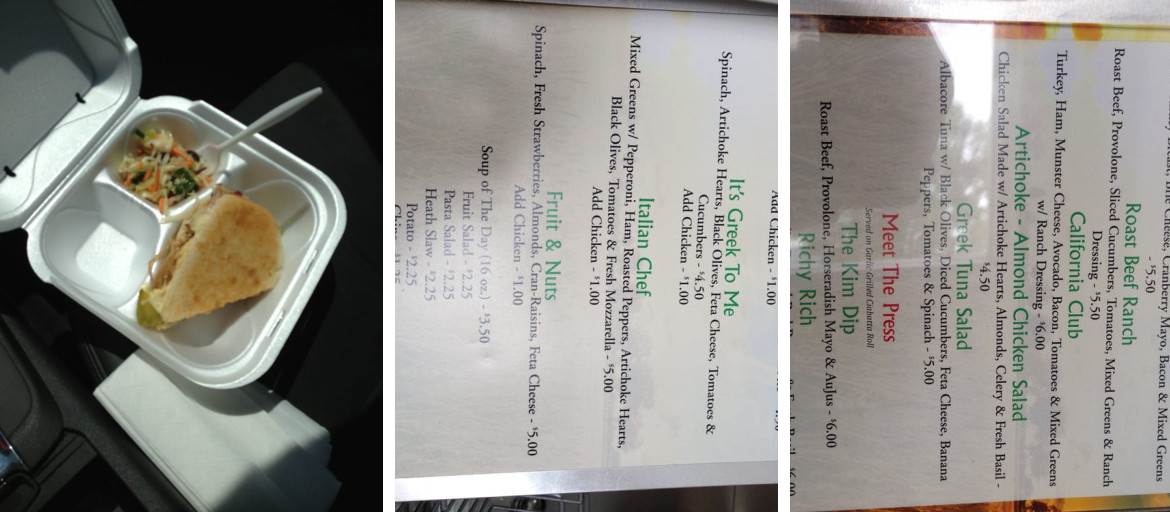 Add Chicken - $1.00
It's Greek To Me
Spinach, Artichoke Hearts, Black Olives, Feta Cheese, Tomatoes &
Cucumbers - $4.50
Add Chicken - $1.00
Italian Chef
Mixed Greens w/ Pepperoni, Ham, Roasted Peppers, Artichoke Hearts,
Black Olives, Tomatoes & Fresh Mozzarella - $5.00
Add Chicken - $1.00
Fruit & Nuts
Spinach, Fresh Strawberries, Almonds, Cran-Raisins, Feta Cheese - $5.00
Add Chicken - $1.00
Soup of The Day (16 oz.) - $3.50
Fruit Salad - $2.25
Pasta Salad - $2.25
Heath Slaw - $2.25
Potato - $2.25
Cheese, Cranberry Mayo, Bacon & Mixed Greens
- $5.50
Roast Beef Ranch
Roast Beef, Provolone, Sliced Cucumbers, Tomatoes, Mixed Greens & Ranch
Dressing - $5.50
California Club
Turkey, Ham, Munster Cheese, Avocado, Bacon, Tomatoes & Mixed Greens
w/ Ranch Dressing - $6.00
Artichoke - Almond Chicken Salad
Chicken Salad Made w/ Artichoke Hearts, Almonds, Celery & Fresh Basil -
$4.50
Greek Tuna Salad
Albacore Tuna w/ Black Olives, Diced Cucumbers, Feta Cheese, Banana
Peppers, Tomatoes & Spinach - $5.00
Meet The Press
Served on Garlic Grilled Ciabatta Roll
The Kim Dip
Roast Beef, Provolone, Horseradish Mayo & AuJus - $6.00
Richy Rich